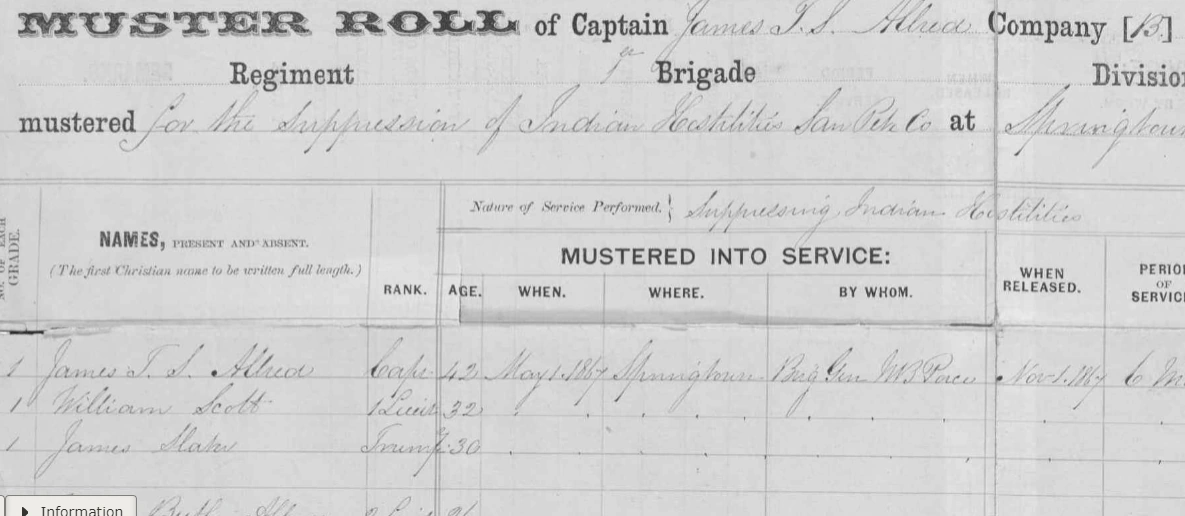 MUSTER ROLL of Captain James T. S. Allred Company [B.]
Regiment 1st Brigade Division
mustered for the Suppression of Indian Hostilities San Pete Co at Springtown
Nature of Service Performed. } Suppressing Indian Hostilities
NO. OF EACH GRADE.
NAMES, PRESENT AND ABSENT.
(The first Christian name to be written full length.)
RANK.
AGE.
MUSTERED INTO SERVICE:
WHEN.
WHERE.
BY WHOM.
WHEN RELEASED.
PERIOD OF SERVICE
1 James T. S. Allred Capt 42 May 1. 1867 Springtown Brig Gen W B Pace Nov. 1. 1867 6 M
1 William Scott 1 Lieut 32
1 James Trump 30
Information